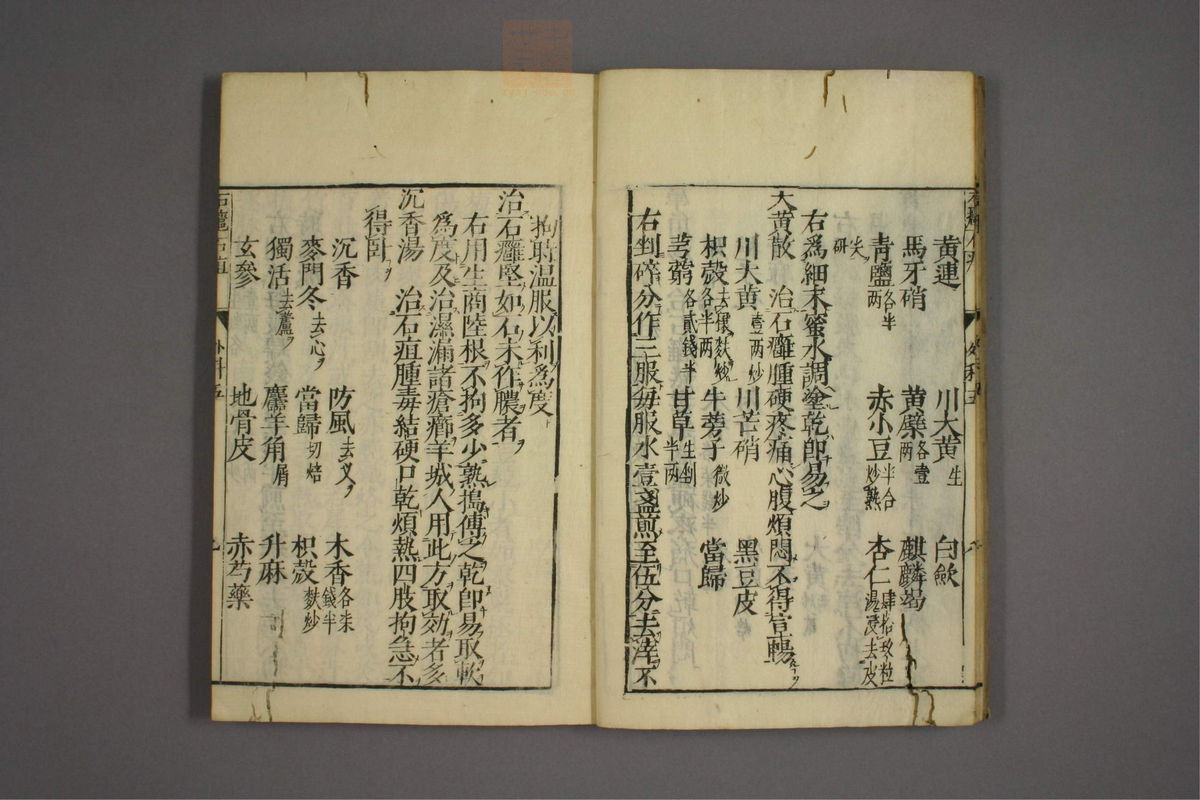 黃連 川大黃生 白蘞
馬牙硝 黃蘗各壹兩 麒麟竭
青鹽各半兩 赤小豆半合炒熟 杏仁肆拾玖粒湯浸去皮
尖ヲ研
右爲細末蜜水調塗乾卽易之
大黃散 治石癰腫硬疼痛心腹煩悶不得宣暢
川大黃壹兩炒 川芒硝 黑豆皮
枳殼去穰麩炒各半兩 牛蒡子微炒 當歸
芎藭各貳錢半 甘草生剉半兩
右剉碎分作三服每服水壹盞煎至伍分去滓不
拘時温服以利爲度
治石癰堅如石未作膿者
右用生商陸根不拘多少熟搗傅之乾卽易取軟
爲度及治濕漏諸瘡癤羊城人用此方取効者多
沉香湯 治石疽腫毒結硬口乾煩熱四肢拘急不
得臥
沉香 防風去叉 木香各柒錢半
麥門冬去心 當歸切焙 枳殼麩炒
獨活去蘆 麢羊角屑 升麻
玄參 地骨皮 赤芍藥
石癰石疽
外科五